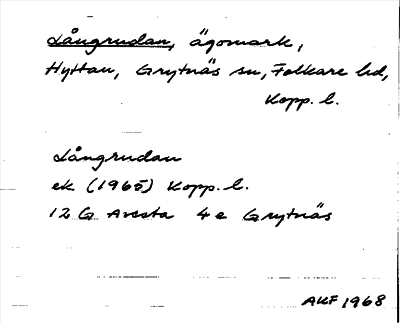 Långrudan, ägomark,
Hyttan, Grytnäs sn, Folkare hd,
Kopp. l.
Långrudan
ek (1965) Kopp. l.
12 G Avesta 4e Grytnäs
AKF 1968